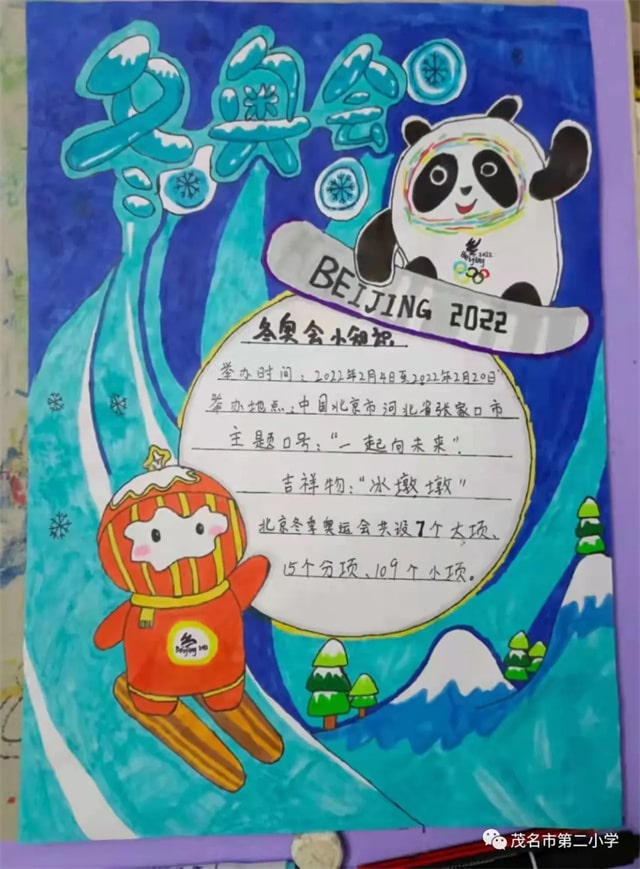 冬奥会
Beijing 2022
BEIJING 2022
冬奥会小知识
举办时间：2022年2月4日至2022年2月20日
举办地点：中国北京市河北省张家口市
主题口号：“一起向未来”.
吉祥物：“冰墩墩”
北京冬季奥运会共设7个大项、
15个分项、109个小项。
Beijing
茂名市第二小学